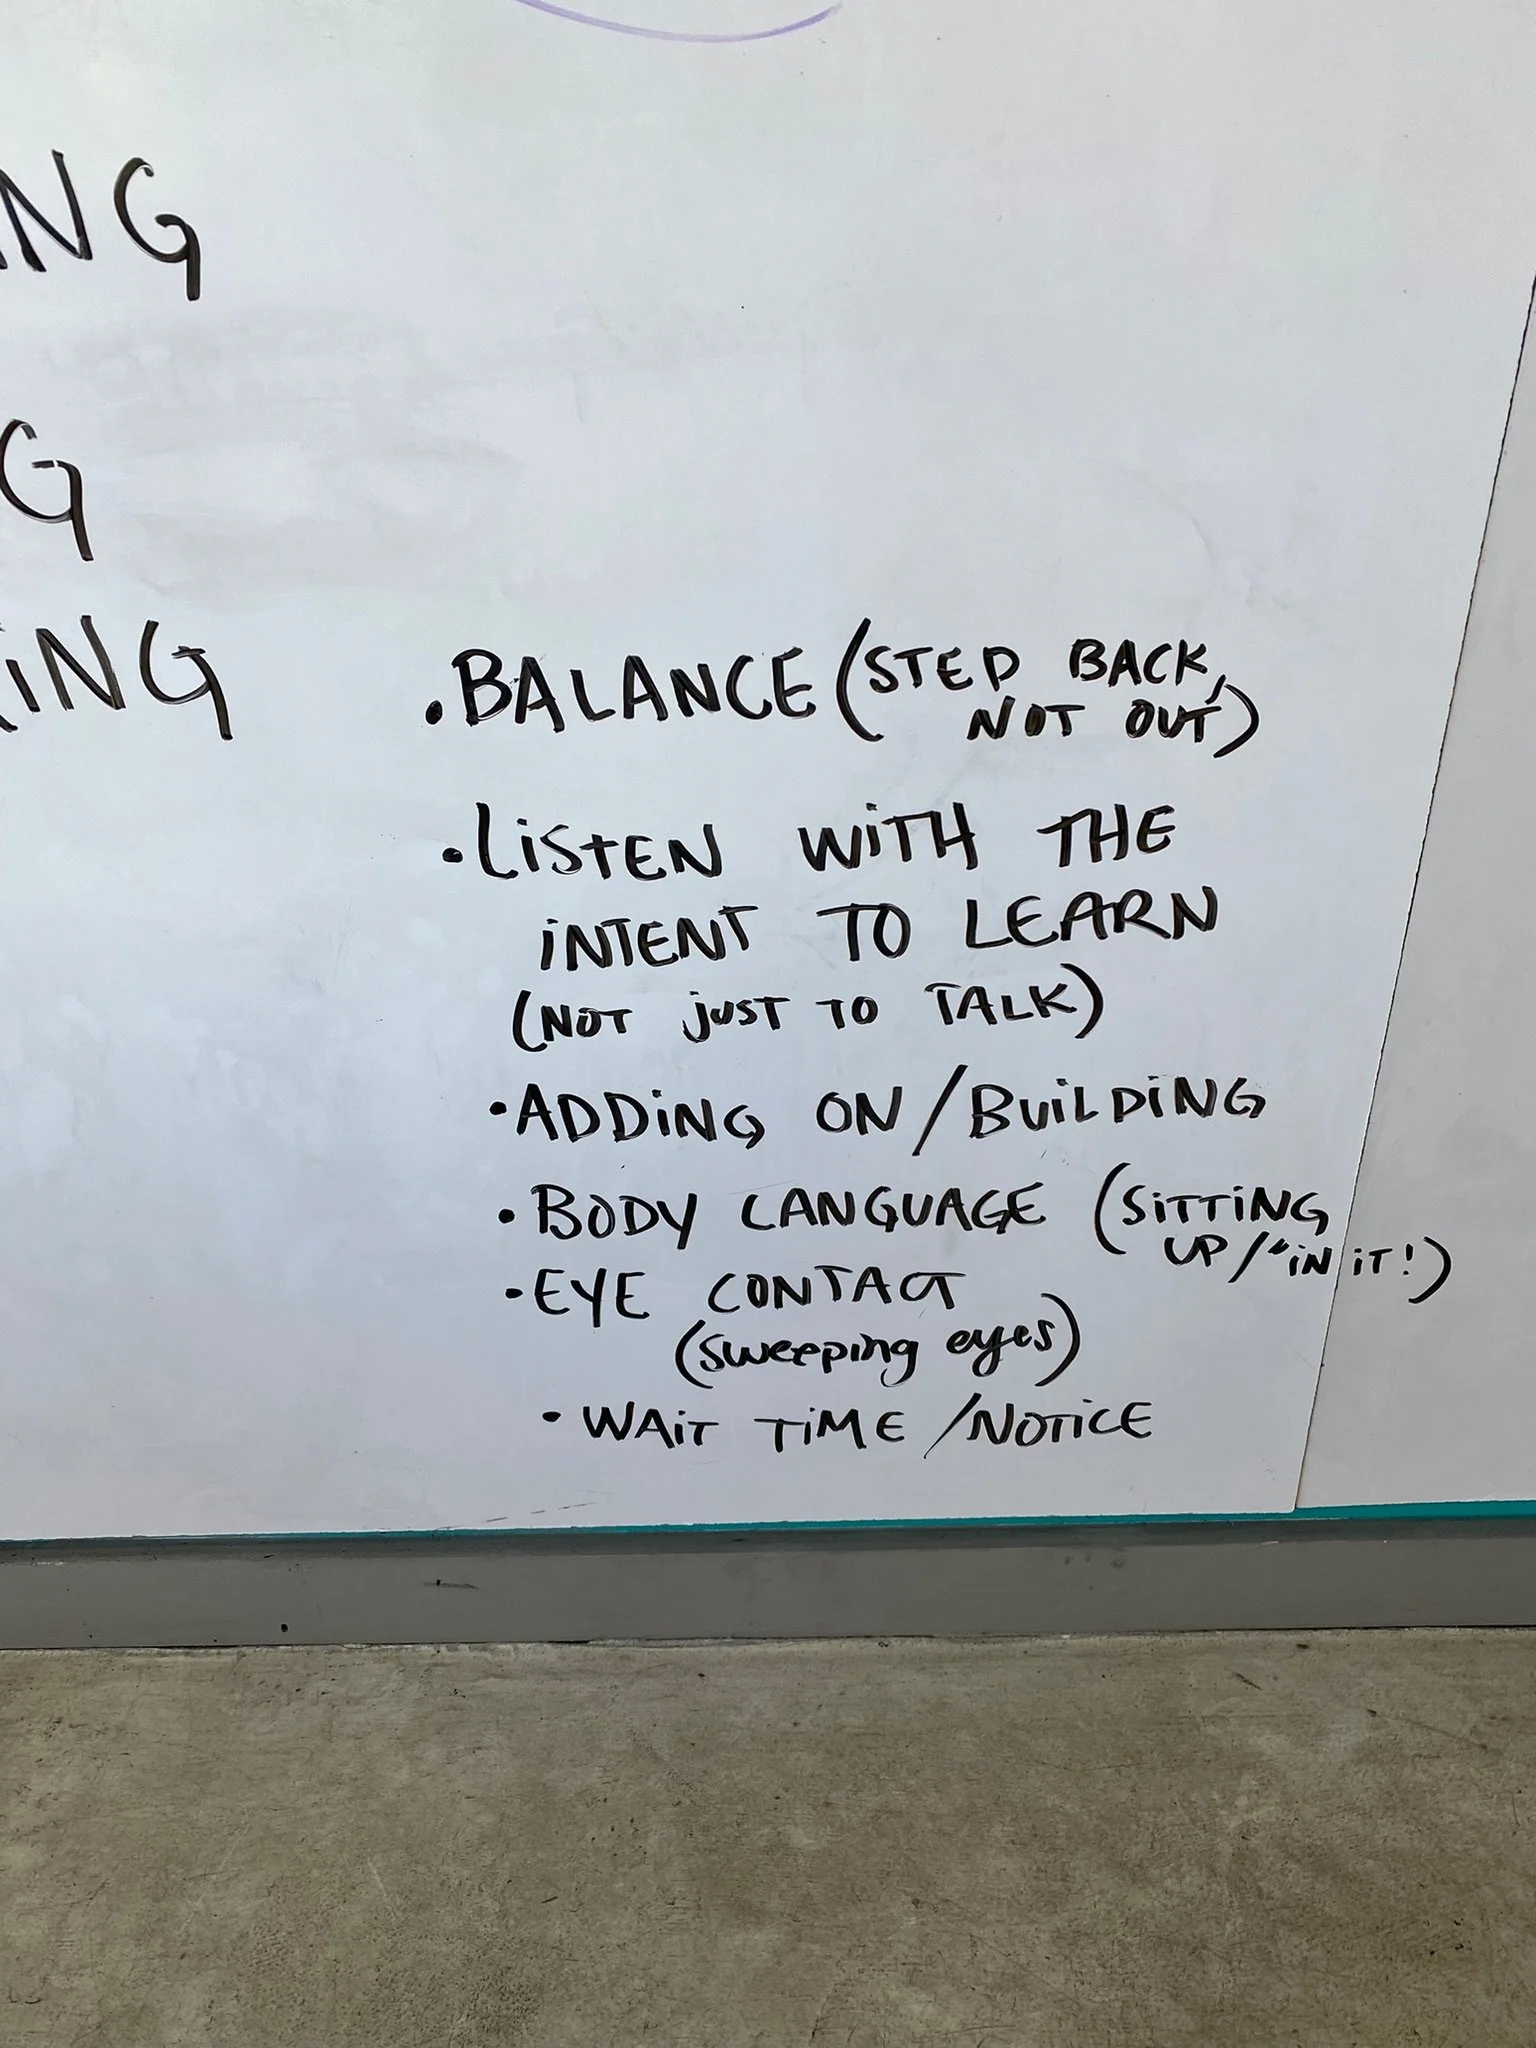 • BALANCE (STEP BACK,
NOT OUT)
• LiSTEN WiTH THE
iNTENT TO LEARN
(NOT jUST TO TALK)
• ADDiNG ON/BUiLDiNG
• BODY LANGUAGE (SiTTiNG
UP/"iN iT!)
• EYE CONTACT
(sweeping eyes)
• WAiT TiME/NOTiCE